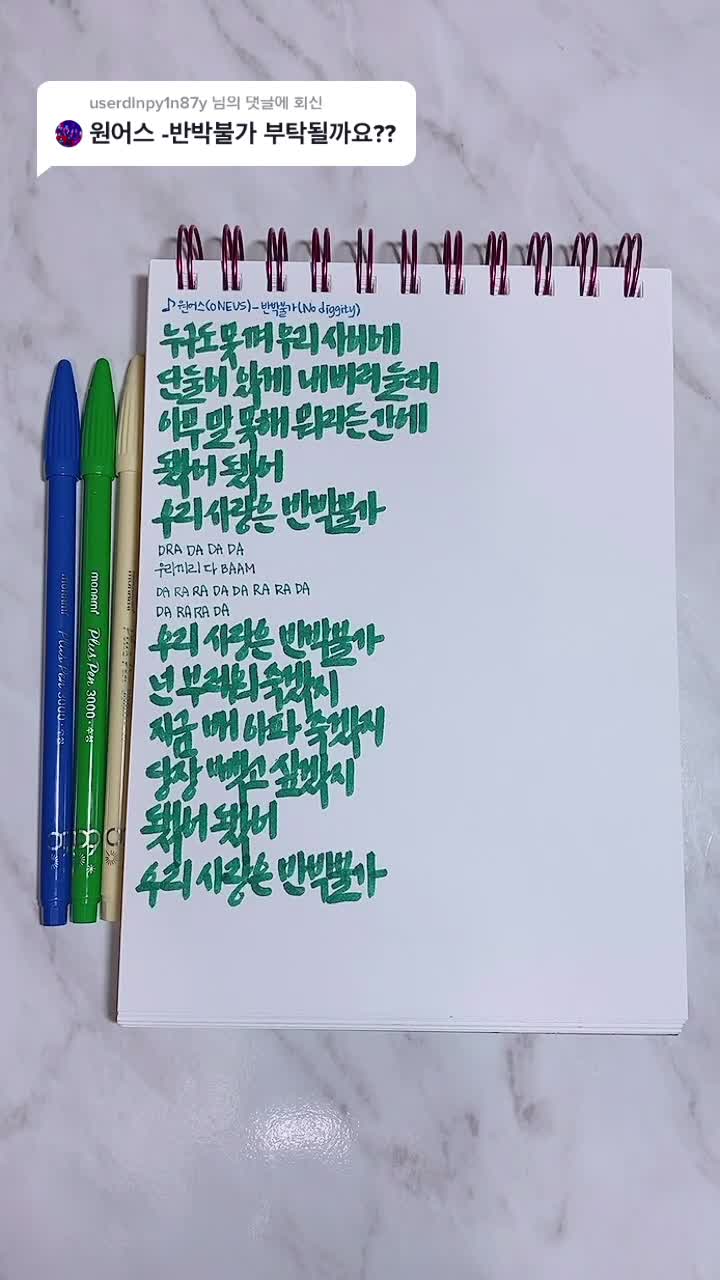 userdlnpy1n87y 님의 댓글에 회신
원어스 -반박불가 부탁될까요??
♪ 원어스(ONEUS)-반박불가(No diggity)
누구도 못 껴 우리 사이에
단둘이 있게 내버려 둘래
아무 말 못해 뭐라든 간에
됐어 됐어
우리 사랑은 반박불가
DRA DA DA DA
우리끼리 다 BAAM
DA RA RA DA DA RA RA DA
DA RA RA DA
우리 사랑은 반박불가
넌 부러워 죽겠지
지금 배 아파 죽겠지
당장 뺏고 싶겠지
됐어 됐어
우리 사랑은 반박불가
monami
Plus Pen 3000
monami
Plus Pen 3000 · 수성